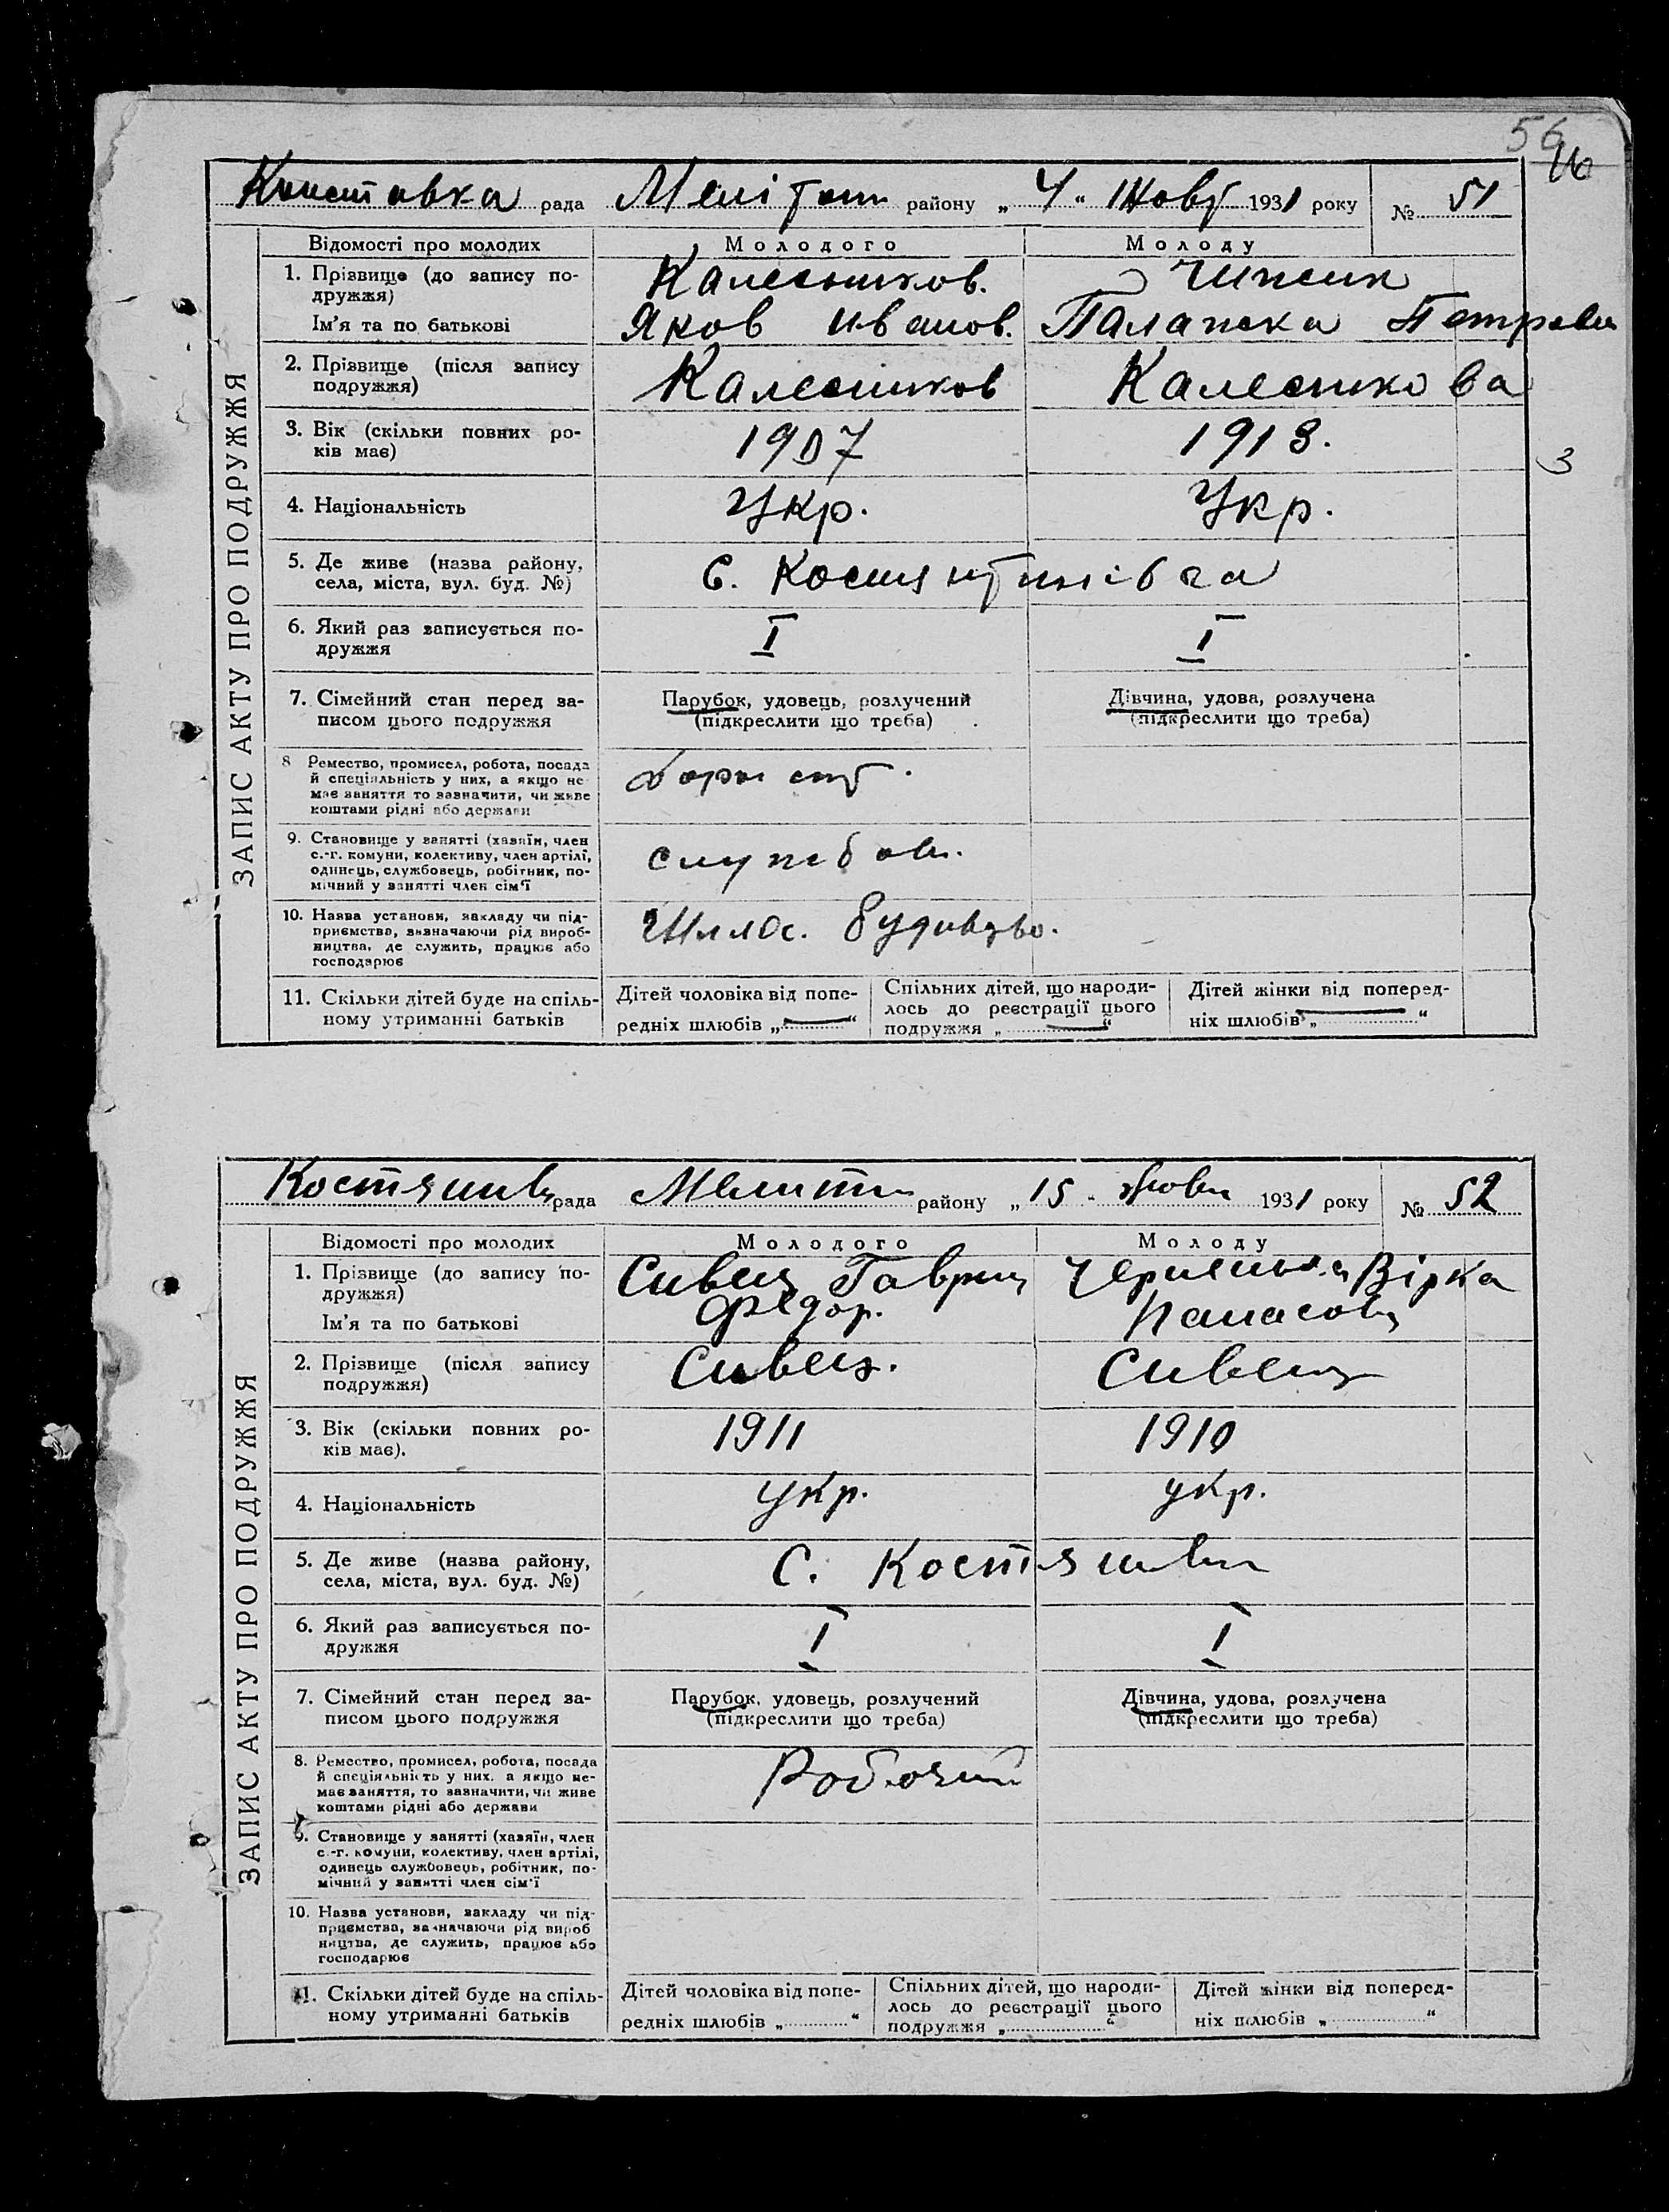 56
Конставка рада Мелітоп району „ 4 “ Жовт 1931 року № 51
ЗАПИС АКТУ ПРО ПОДРУЖЖЯ
Відомості про молодих Молодого Молоду
1. Прізвище (до запису по-
дружжя)
Калесников.
Ім'я та по батькові
Яков Иванов. Палажка Петрова
2. Прізвище (після запису
подружжя)
Калесников Калесникова
3. Вік (скільки повних ро-
ків має)
1907 1913.
3
4. Національність Укр. Укр.
5. Де живе (назва району,
села, міста, вул. буд. №)
С. Костянтинівка
6. Який раз записується по-
дружжя
I I
7. Сімейний стан перед за-
писом цього подружжя
Парубок, удовець, розлучений
(підкреслити що треба)
Дівчина, удова, розлучена
(підкреслити що треба)
8 Ремество, промисел, робота, посада
й спеціяльність у них, а якщо не
має заняття то зазначити, чи живе
коштами рідні або держави
9. Становище у занятті (хазяїн, член
с.-г. комуни, колективу, член артілі,
одинець, службовець, робітник, по-
мічний у занятті член сім'ї
службов.
10. Назва установи, закладу чи під-
приємства, зазначаючи рід вироб-
ництва, де служить, працює або
господарює
Будивцтво.
11. Скільки дітей буде на спіль-
ному утриманні батьків
Дітей чоловіка від попе-
редніх шлюбів „ — “
Спільних дітей, що народи-
лось до реєстрації цього
подружжя „ — “
Дітей жінки від поперед-
ніх шлюбів „ — “
Костянив рада Мелитп району „ 15 “ жовт 1931 року № 52
ЗАПИС АКТУ ПРО ПОДРУЖЖЯ
Відомості про молодих Молодого Молоду
1. Прізвище (до запису по-
дружжя)
Сивец Гаврил Вірка
Ім'я та по батькові
Федор. Панасов
2. Прізвище (після запису
подружжя)
Сивец. Сивец
3. Вік (скільки повних ро-
ків має).
1911 1910
4. Національність укр. укр.
5. Де живе (назва району,
села, міста, вул. буд. №)
С. Костянивк
6. Який раз записується по-
дружжя
I I
7. Сімейний стан перед за-
писом цього подружжя
Парубок, удовець, розлучений
(підкреслити що треба)
Дівчина, удова, розлучена
(підкреслити що треба)
8. Ремество, промисел, робота, посада
й спеціяльність у них, а якщо не-
має заняття, то зазначити, чи живе
коштами рідні або держави
Робочий
9. Становище у занятті (хазяїн, член
с.-г. комуни, колективу, член артілі,
одинець службовець, робітник, по-
мічний у занятті член сім'ї
10. Назва установи, закладу чи під-
приємства, зазначаючи рід вироб
ництва, де служить, працює або
господарює
11. Скільки дітей буде на спіль-
ному утриманні батьків
Дітей чоловіка від попе-
редніх шлюбів „ “
Спільних дітей, що народи-
лось до реєстрації цього
подружжя „ “
Дітей жінки від поперед-
ніх шлюбів „ “